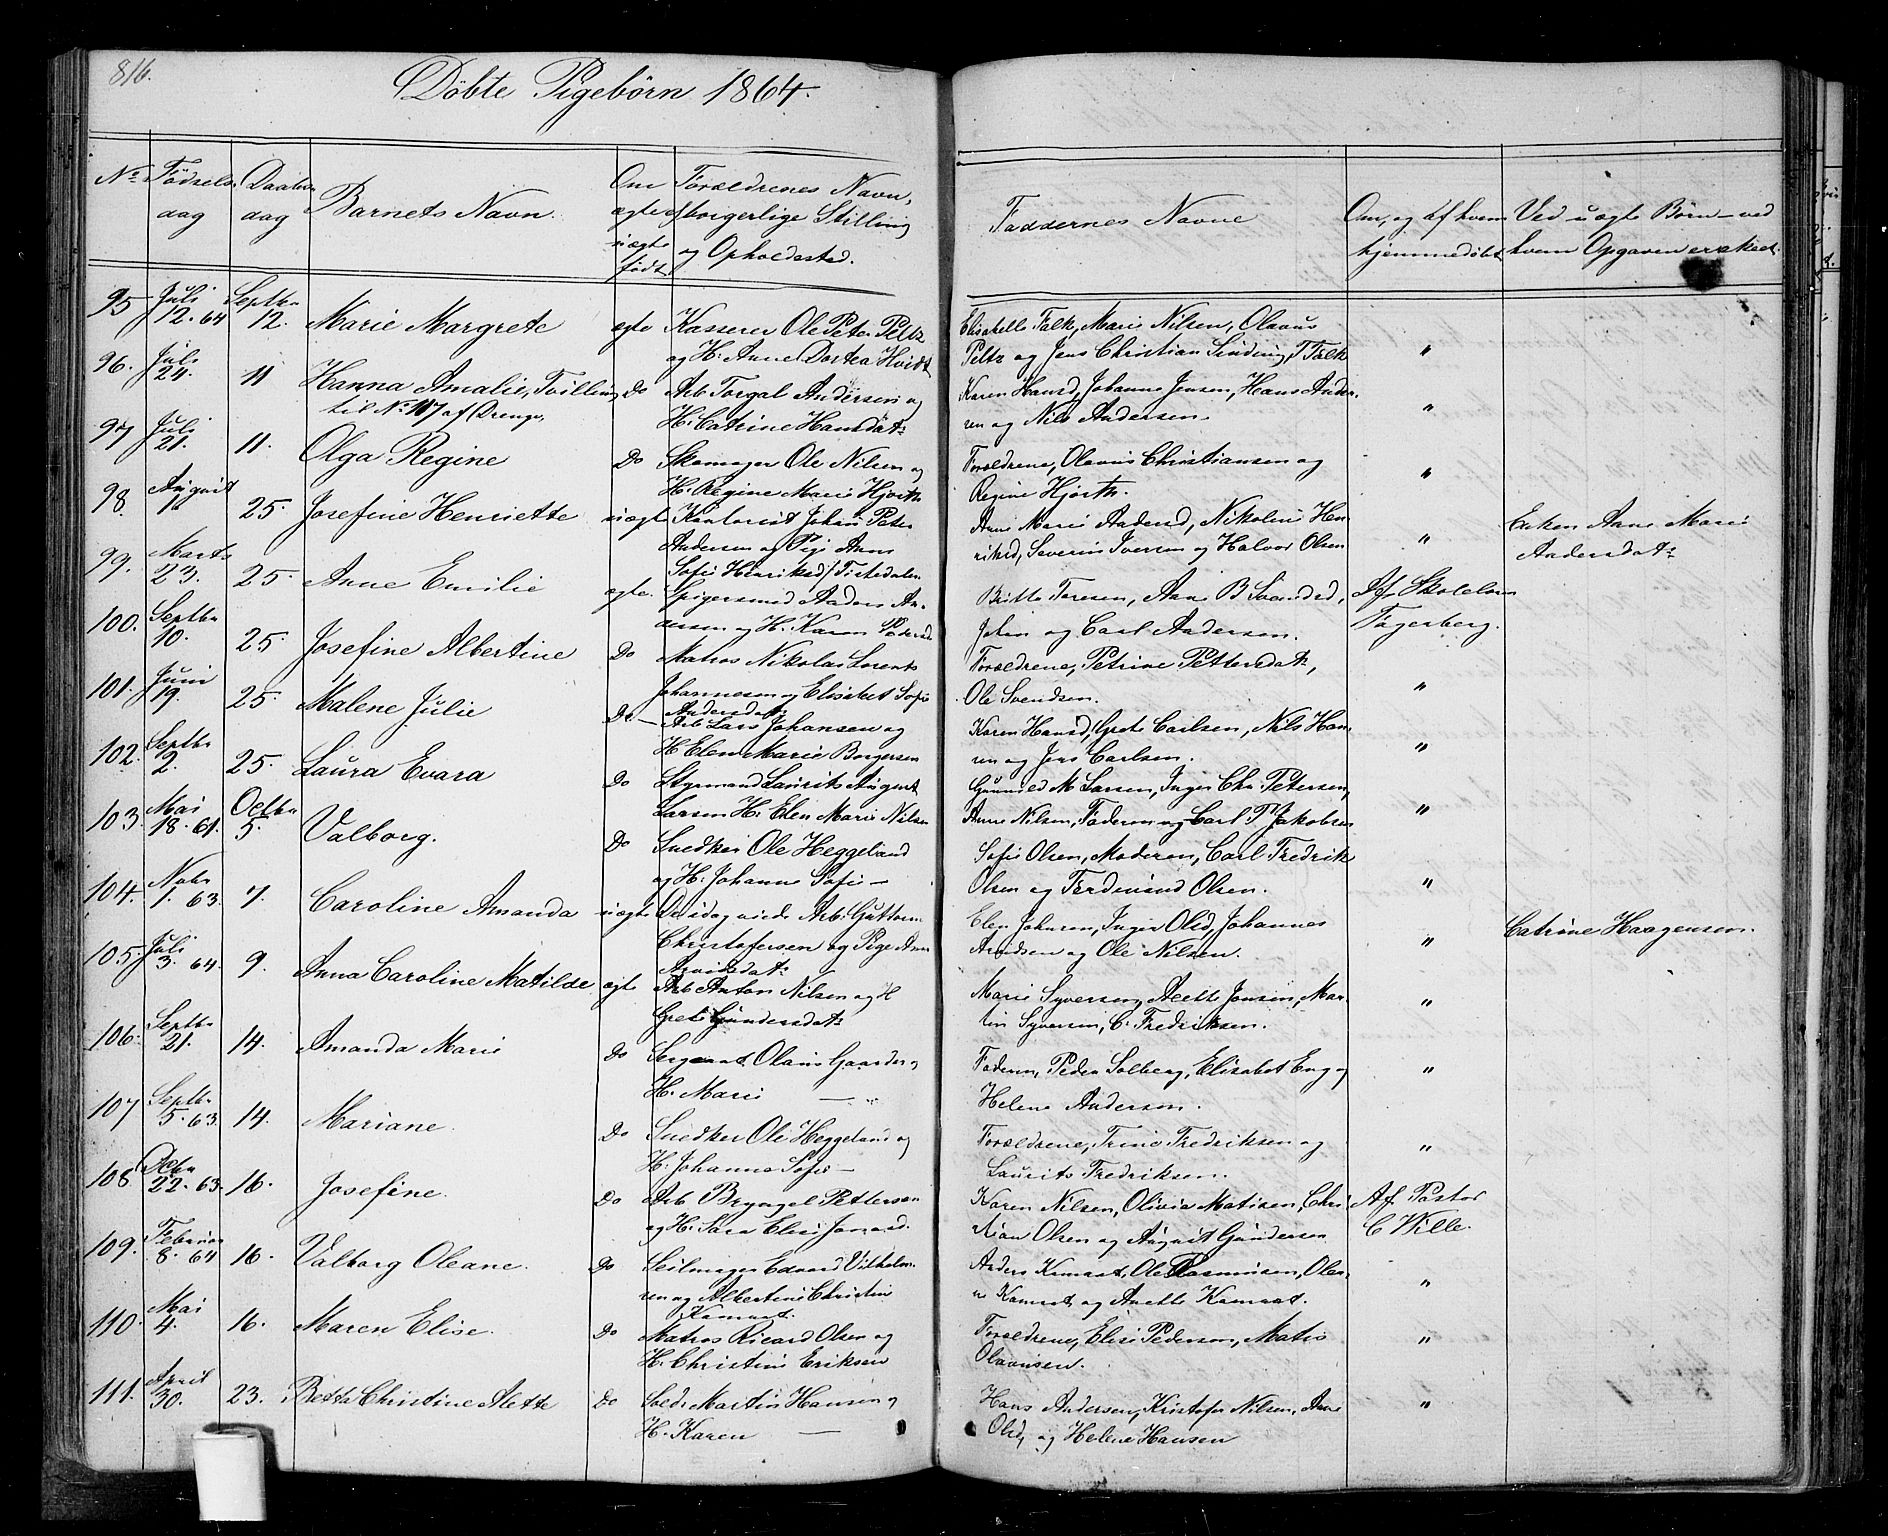 816.
Döbte Pigebörn 1864.
No
Födsels-
dag
Daabs-
dag
Barnets Navn.
Om
ægte el
uægte
födt
Forældrenes Navn,
borgerlige Stilling
og Opholdssted.
Faddernes Navne
Om, og af hvem
hjemmedöbt
Ved uægte Börn - ved
hvem Opgaven er skeet.
95 Juli 12. 64 Septbr 12. Marie Margrete ægte Kasserer Ole Peter Peltz
og H. Anne Dortea Hvidt
Elisabelle Falk, Marie Nilsen, Olaus
Peltz og Jens Christian Sinding, T Falk "
96. Juli 24. 11 Hanna Amalie, Tvilling
til No 117 af Drenge, Do Arb Torgal Andersen og
H. Catrine Hansdatr
Karen Hansd, Johanne Jensen, Hans Ander-
sen og Nils Andersen. "
97 Juli 21. 11. Olga Regine Do Skomager Ole Nilsen og
H. Regine Marie Hjorth
Forældrene, Olavus Christiansen og
Regine Hjorth. "
98. August 1. 25. Josefine Henriette uægte Kontorist Johan Peter
Andersen og Pige Anne
Sofie Henriksd / Tistedalen
Anne Marie Andersd, Nikoline Hen-
riksd, Severin Iversen og Halvor Olsen "
Enken Anne Marie
Andersdatr
99. Marts 23. 25. Anne Emilie ægte. Spigersmed Anders An-
dersen og H. Karen Pedersd
Britte Toresen, Anne B Svendsd,
Johan og Carl Andersen.
Af Skolelær
Fagerberg.
100. Septbr 10. 25. Josefine Albertine Do Matros Nikolai Lorents
Johannesen og Elisabet Sofie
Andersdatr
Forældrene, Petrine Pettersdatr,
Ole Svendsen. "
101. Juni 19. 25. Malene Julie Do - Arb Lars Johansen og
H Elen Marie Borgersen
Karen Hansd, Grete Carlsen, Nils Han-
sen og Jens Carlsen. "
102. Septbr 2. 25. Laura Evara Do Styrmand Laurits August
Larsen H. Elen Marie Nilsen
Gunnild M Larsen, Inger Chr. Petersen,
Anne Nilsen, Faderen og Carl Fr Jakobsen "
103. Mai 18. 61. Octbr 5. Valborg. Do Snedker Ole Heggeland
og H. Johanne Sofie -
Sofie Olsen, Moderen, Carl Fredrik
Olsen og Ferdinand Olsen. "
104. Nobr 1. 63. 7. Caroline Amanda uægte De idag viede Arb. Guttorm
Christofersen og Pige Anne
Arvidsdatr
Elen Johnsen, Inger Olsd, Johannes
Arvidsen og Ole Nilsen. "
Catrine Haagensen.
105. Juli 3. 64. 9. Anna Caroline Matilde ægte Arb Anton Nilsen og H
Grete Gundersdatr
Marie Syversen, Anette Jensen, Mar-
tin Syversen, C. Fredriksen. "
106. Septbr 21. 14. Amanda Marie Do Sergeant Olaus Gaarder og
H. Marie - "
Faderen, Peder Solberg, Elisabet Eng og
Helene Andersen. "
107 Septbr 5. 63. 14. Mariane. Do Snedker Ole Heggeland og
H. Johanna Sofie -
Forældrene, Trine Fredriksen og
Laurits Fredriksen. "
108 Octbr 22. 63. 16. Josefine. Do Arb. Bryngel Pettersen
og H. Sara Elise Jonasd.
Karen Nilsen, Olivia Matisen, Chri-
stian Olsen og August Gundersen
Af Pastor
C Wille.
109. Februar 8. 64 16. Valborg Oleane. Do Seilmager Edvard Vilhelm-
sen og Albertine Christine
Kamsat.
Anders Kamsat, Ole Rasmusen, Olea-
ne Kamsat og Anette Kamsat. "
110. Mai 4. 16. Maren Elise. Do Matros Ricard Olsen og
H. Christine Eriksen
Forældrene, Elise Pedersen, Matis
Olavusen. "
111. April 30. 23. Betta Christine Alette Do Sold. Martin Hansen og
H. Karen -
Hans Andersen, Kristofer Nilsen, Anne
Olsd, og Helene Hansen "